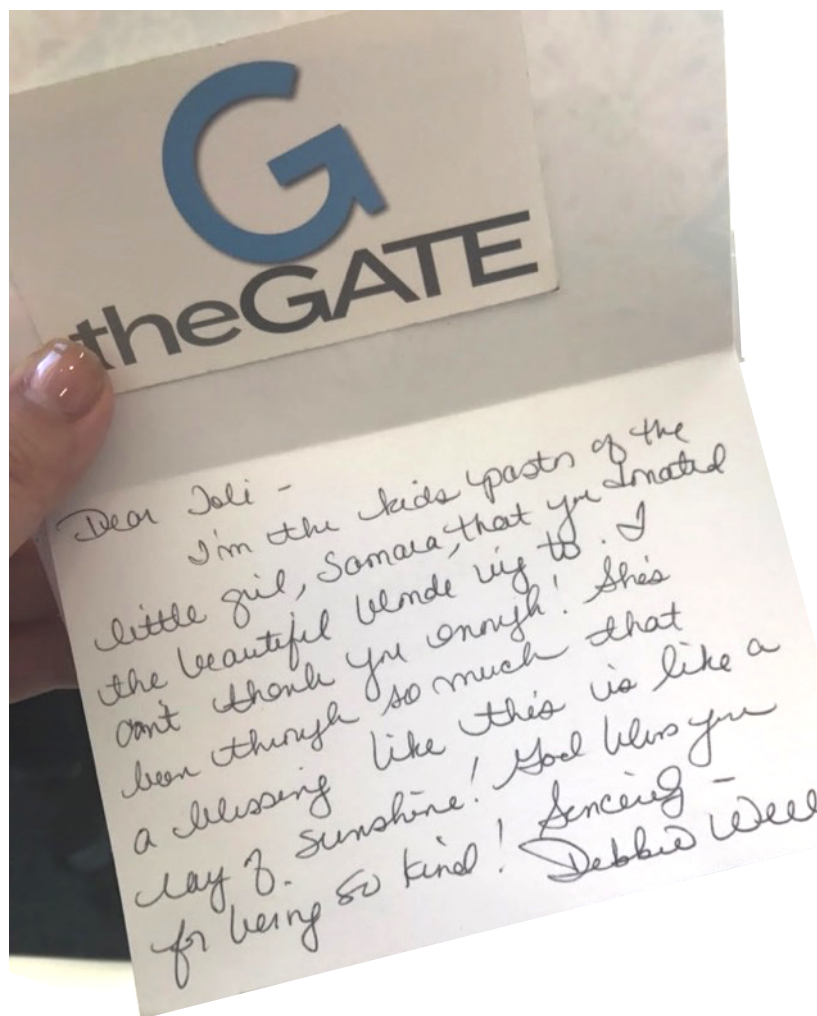 G
theGATE
Dear Joli -
I'm the kids pastor of the
little girl, Samara, that you donated
the beautiful blonde wig to. I
can't thank you enough! She's
been through so much that
a blessing like this is like a
ray of sunshine! God bless you
for being so kind! Sincerely -
Debbie